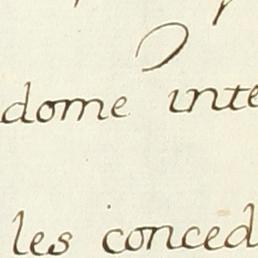 dome inte
les conced